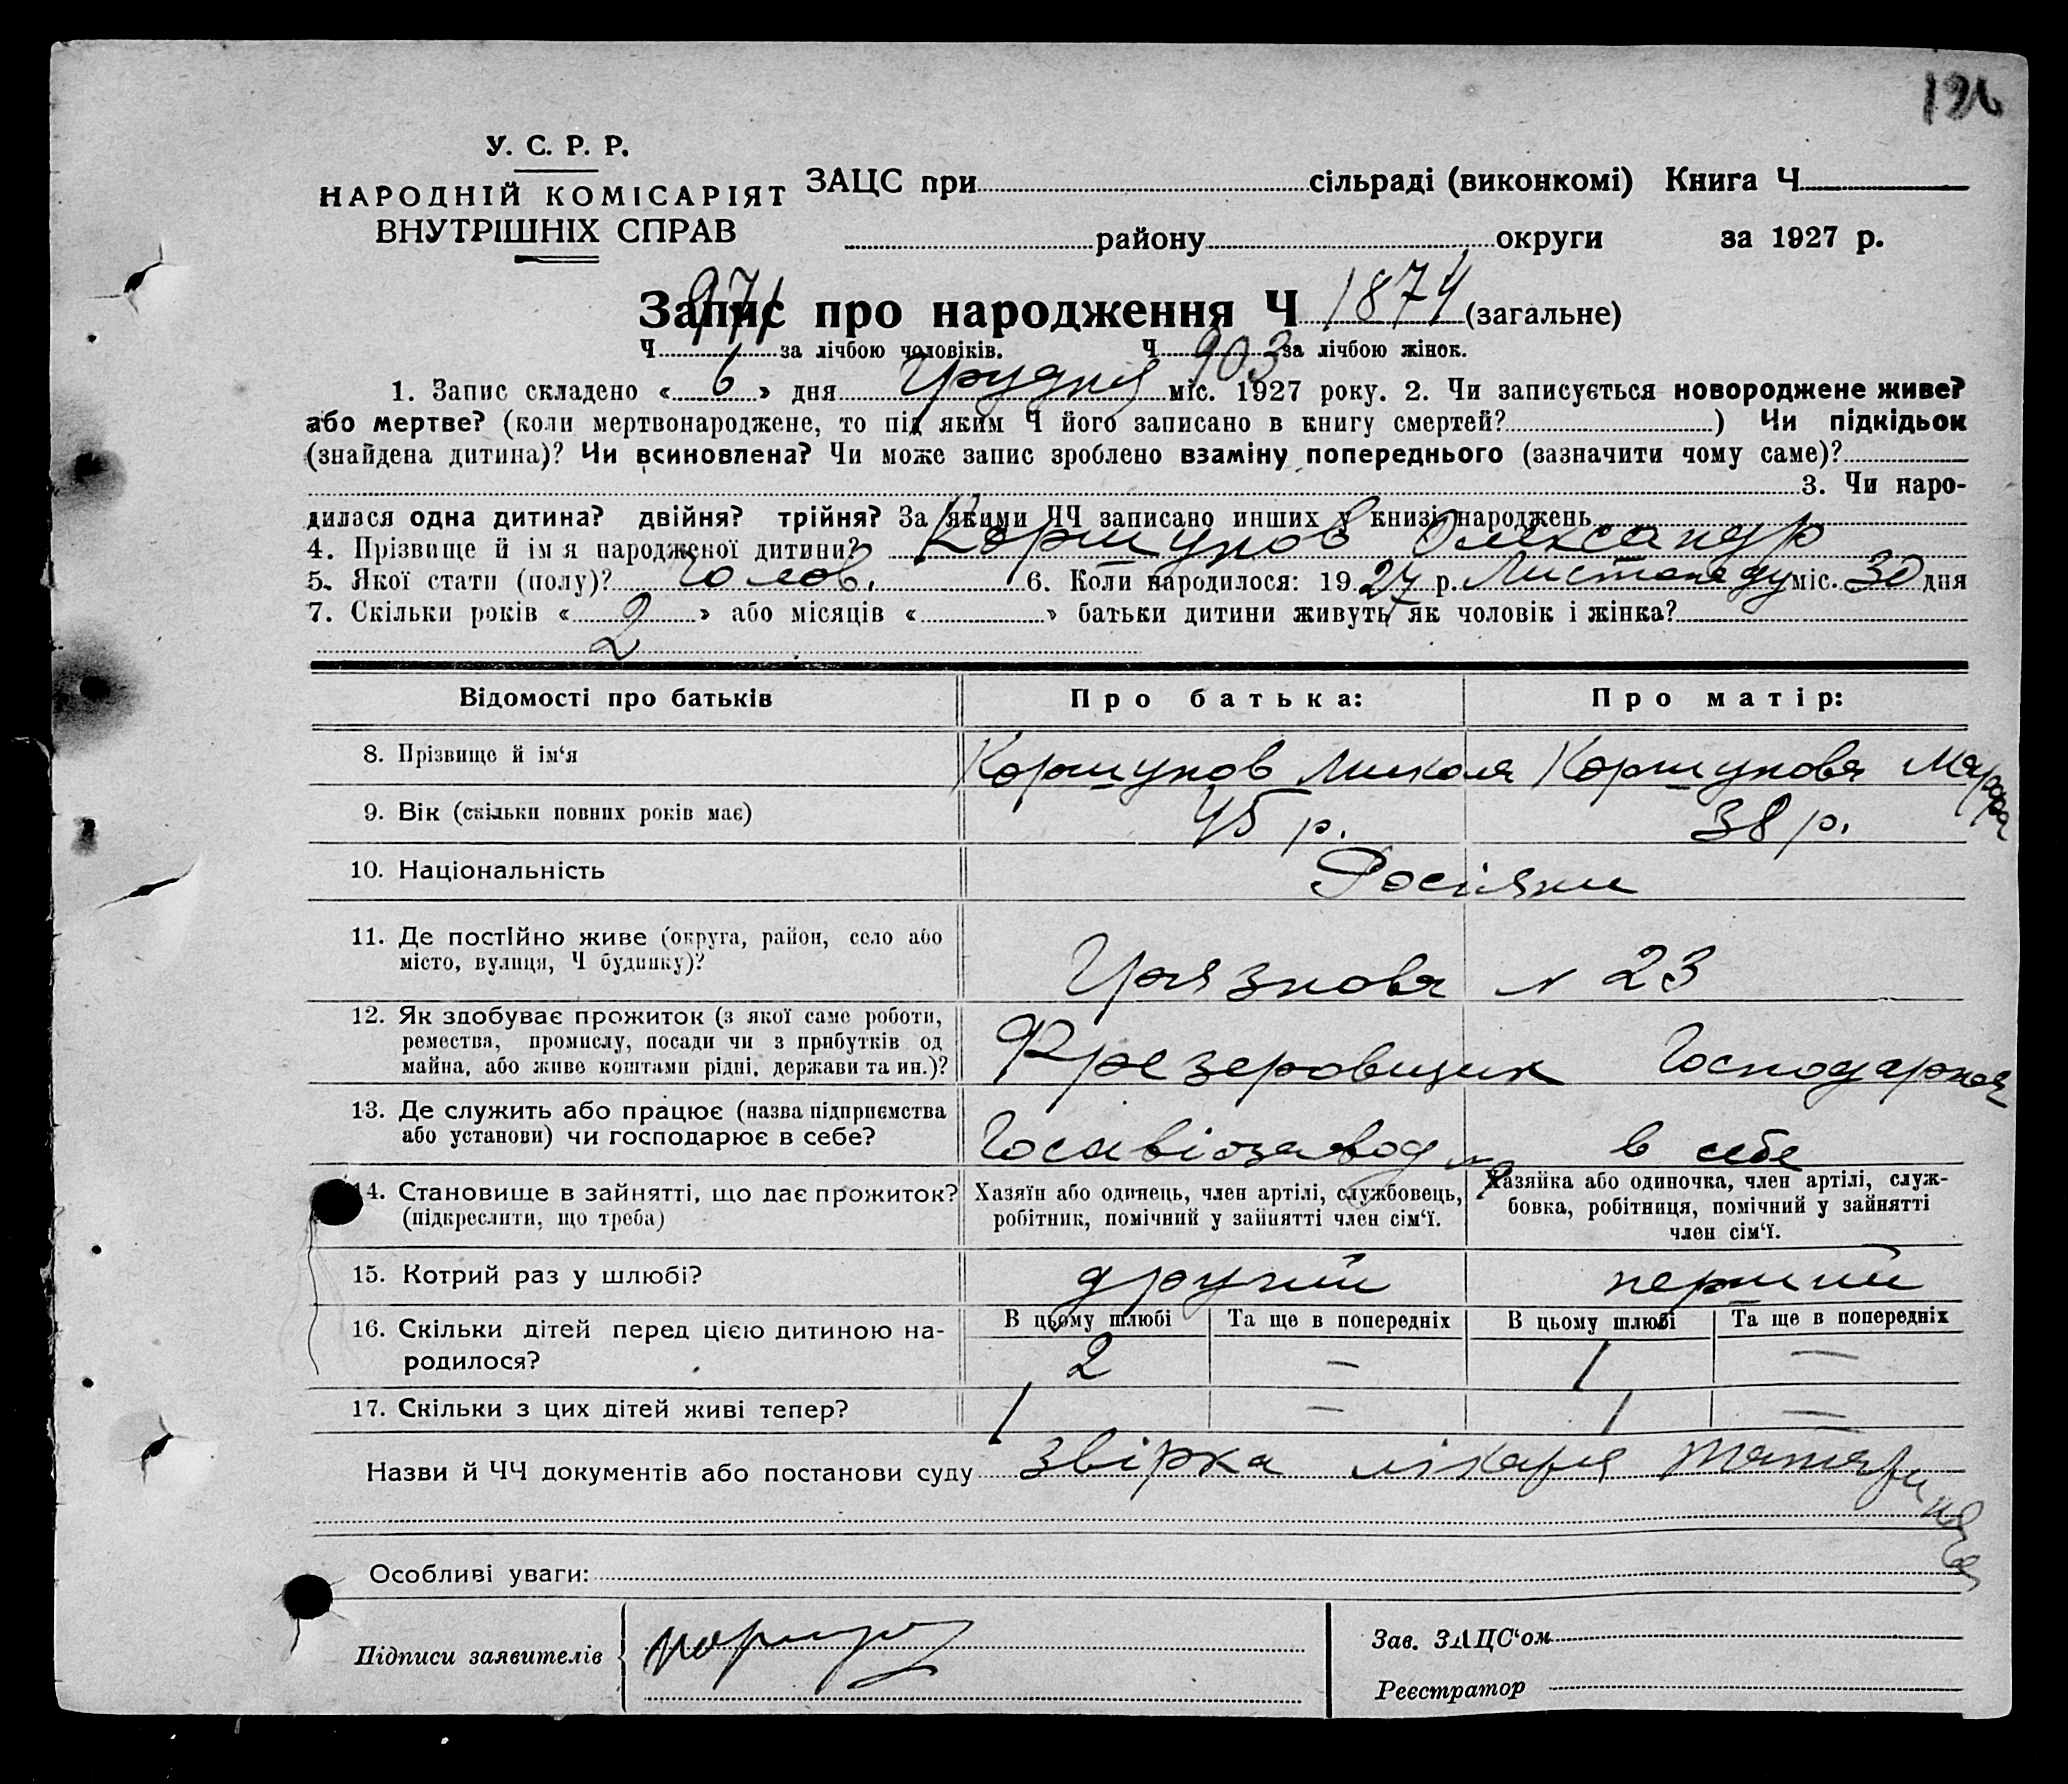 126
У. С. Р. Р.
НАРОДНІЙ КОМІСАРІЯТ
ВНУТРІШНІХ СПРАВ
ЗАЦС при сільраді (виконкомі) Книга Ч
району округи за 1927 р.
Запис про народження Ч 1874 (загальне)
Ч 971 за лічбою чоловіків. Ч 903 за лічбою жінок.
1. Запис складено « 6 » дня Грудня міс. 1927 року. 2. Чи записується новороджене живе?
або мертве? (коли мертвонароджене, то під яким Ч його записано в книгу смертей? ) Чи підкідьок
(знайдена дитина)? Чи всиновлена? Чи може запис зроблено взаміну попереднього (зазначити чому саме)?
3. Чи наро-
дилася одна дитина? двійня? трійня? За якими ЧЧ записано инших у книзі народжень
4. Прізвище й ім я народженої дитини? Коршунов Олександр
5. Якої стати (полу)? Чолов. 6. Коли народилося: 19 27 р. Листопаду міс. 30 дня
7. Скільки років « 2 » або місяців « » батьки дитини живуть як чоловік і жінка?
Відомості про батьків Про батька: Про матір:
8. Прізвище й ім‘я Коршунов Микола Коршунова Марфа
9. Вік (скільки повних років має) 45 р. 38 р.
10. Національність Росіяни
11. Де постійно живе (округа, район, село або
місто, вулиця, Ч будинку)? Грязнова N 23
12. Як здобуває прожиток (з якої саме роботи,
ремества, промислу, посади чи з прибутків од
майна, або живе коштами рідні, держави та ин.)? Фрезеровщик Господарка
13. Де служить або працює (назва підприємства
або установи) чи господарює в себе? Госавіозавод в себе
14. Становище в зайнятті, що дає прожиток?
(підкреслити, що треба)
Хазяїн або одинець, член артілі, службовець,
робітник, помічний у зайнятті член сім‘ї.
Хазяйка або одиночка, член артілі, служ-
бовка, робітниця, помічний у зайнятті
член сім‘ї.
15. Котрий раз у шлюбі? другий перший
16. Скільки дітей перед цією дитиною на-
родилося?
В цьому шлюбі Та ще в попередніх В цьому шлюбі Та ще в попередніх
2 — 1 —
17. Скільки з цих дітей живі тепер? 1 — 1 —
Назви й ЧЧ документів або постанови суду звірка лікаря
Особливі уваги:
Підписи заявителів
Зав. ЗАЦС‘ом
Реєстратор